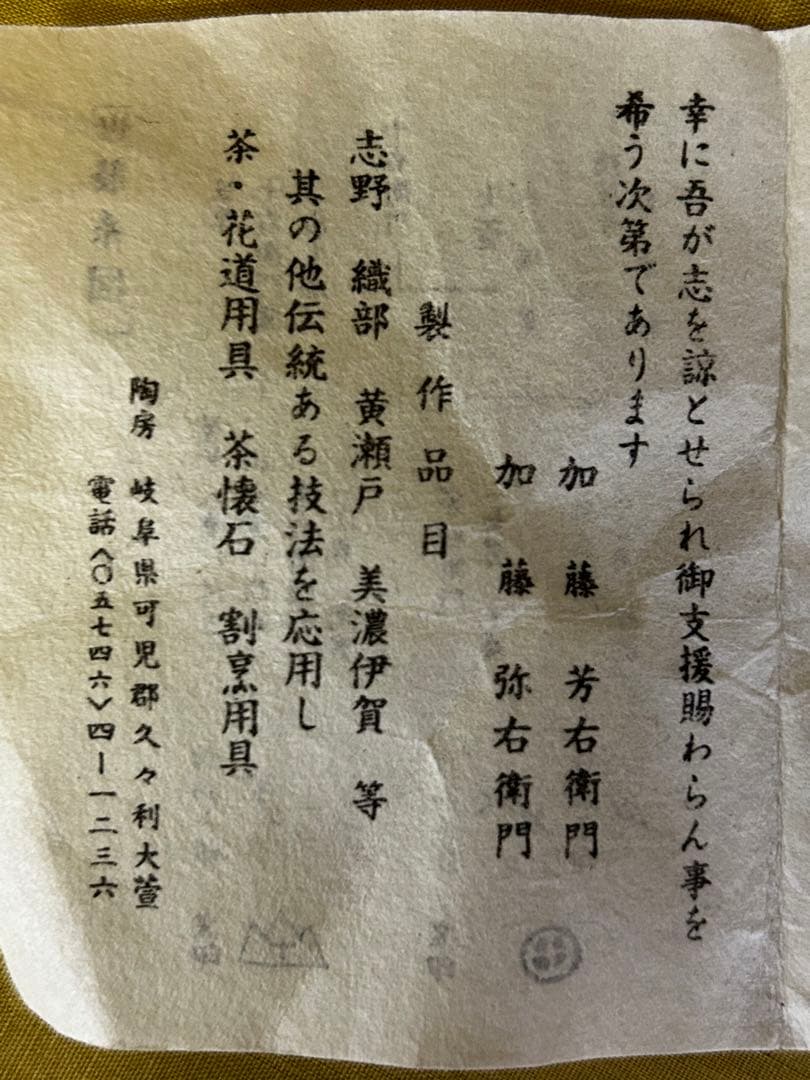 幸に吾が志を諒とせられ御支援賜わらん事を
希う次第であります
加藤芳右衛門
加藤弥右衛門
製作品目
志野 織部 黄瀬戸 美濃伊賀 等
其の他伝統ある技法を応用し
茶・花道用具 茶懐石 割烹用具
陶房 岐阜県可児郡久々利大萱
電話〈〇五七四六〉四ー一二三六